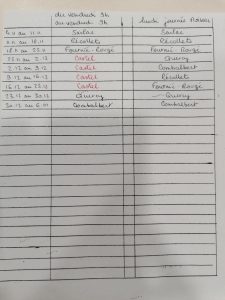 du vendredi 9h
au vendredi 9h
Lundi journée
4.11 au 11.11 Saulas Saulas
11.11 au 18.11 Récollets Récollets
18.11 au 25.11 Fournié - Rouzé Fournié - Rouzé
25.11 au 2.12 Castel Quercy
2.12 au 9.12 Castel Combalbert
9.12 au 16.12 Castel Récollets
16.12 au 23.12 Castel Fournié Rouzé
23.12 au 30.12 Quercy Quercy
30.12 au 6.01 Combalbert Combalbert